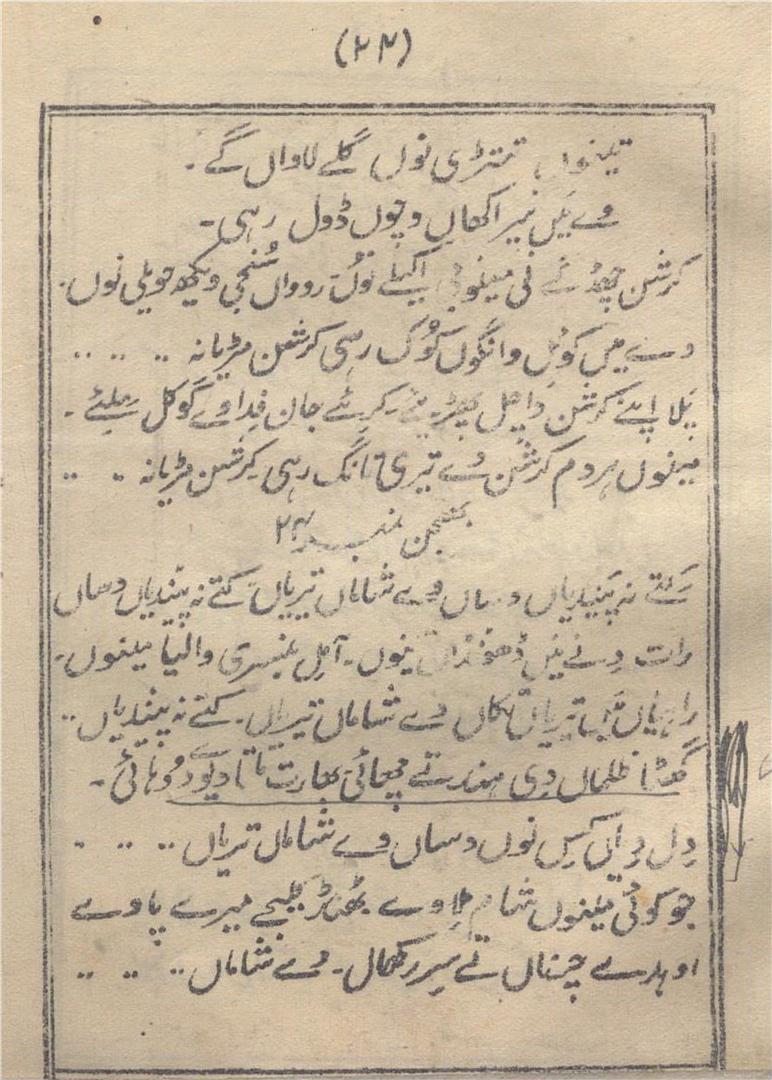 (۲۴)
تینوں تتڑی نوں گلے لاواں گے۔
وے میں نیر اکھاں وچوں ڈول رہی۔
کرشن چھڈ گئے نی مینوں اکیلے نوں روواں سُنجی ویکھ حویلی نوں۔
وے میں کوئل وانگوں کُوک رہی کرشن مڑیا نہ .. .. ..
پلا اپنے کرشن دا چل پھڑیئے۔ کریئے جان فدا وے گوکل چلئے۔
مینوں ہر دم کرشن وے تیری تانگ رہی کرشن مڑیا نہ .. ..
بھجن نمبر ۲۴
کتے نہ پیندیاں دساں وے شاماں تیریاں کتے نہ پیندیاں دساں
رات دنے میں ڈھونڈاں تینوں۔ آمل بنسری والیا مینوں۔
راہیاں میں تیریاں تکاں وے شاماں تیریاں۔ کتے نہ پیندیاں ..
گھٹا ظلماں دی ہند تے چھائی بھارت ماتا دیوے دوہائی۔
دل دیاں کس نوں دساں وے شاماں تیریاں .. .. ..
جو کوئی مینوں شام ملاوے ٹھنڈ کلیجے میرے پاوے
اوہدے چرناں تے سر رکھاں۔ وے شاماں .. .. ..